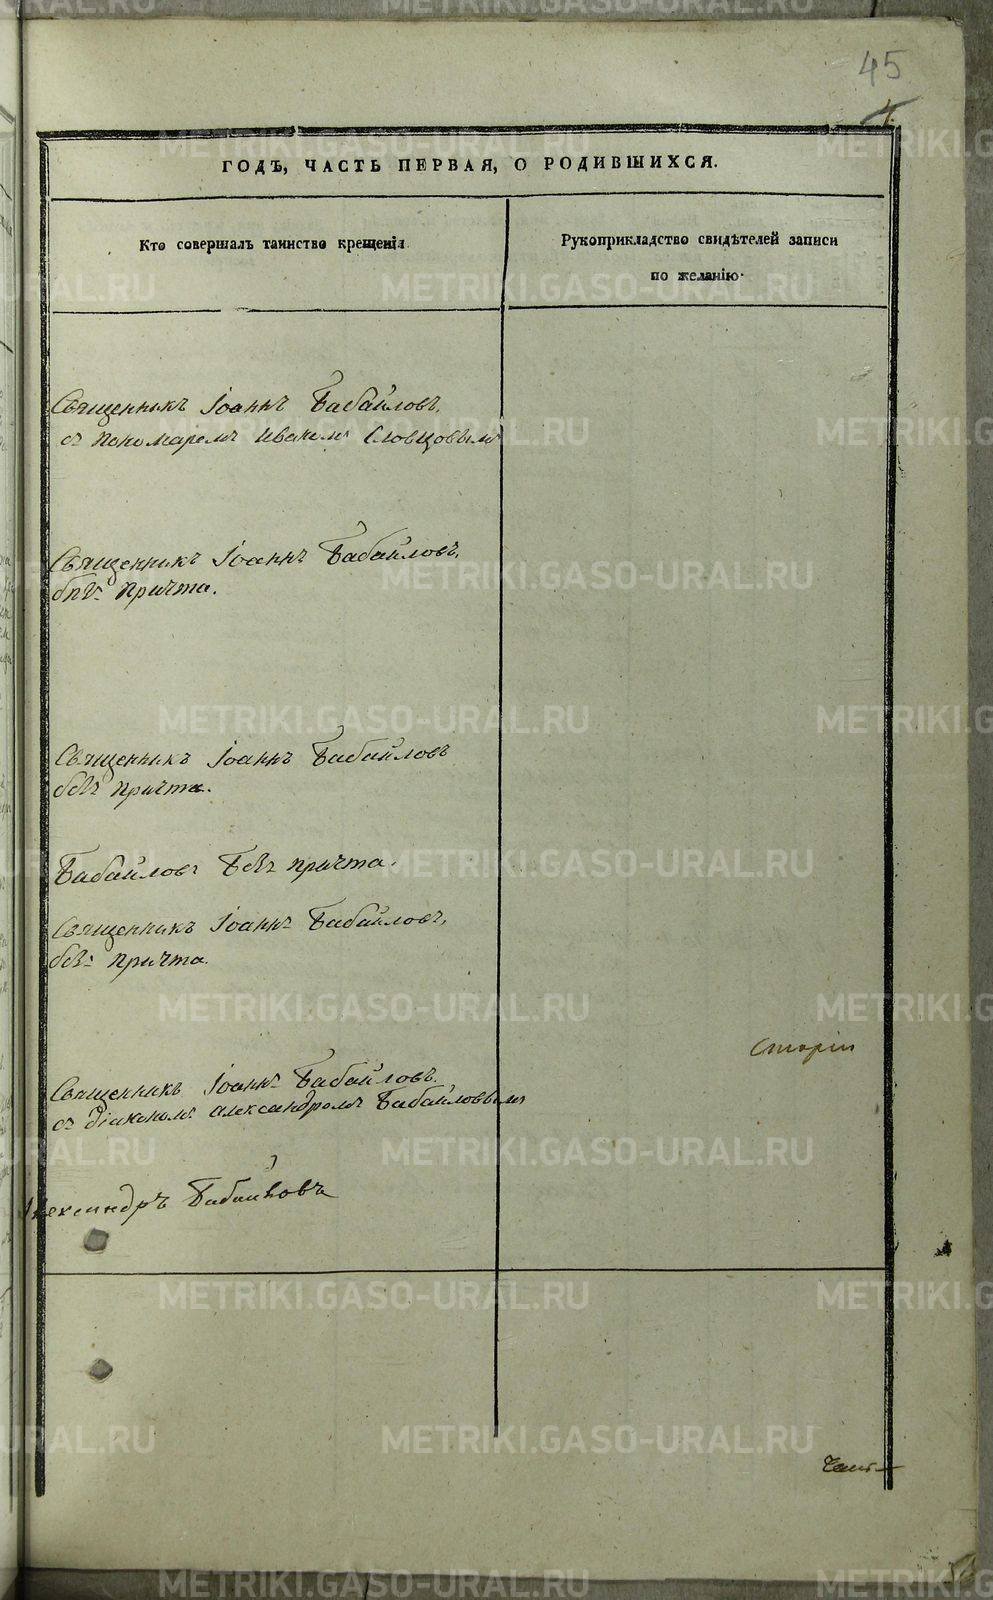 45
4.
ГОДЪ, ЧАСТЬ ПЕРВАЯ, О РОДИВШИХСЯ.
Кто совершалъ таинство крещенія
Рукоприкладство свидѣтелей записи
по желанію.
Священникъ Іоаннъ Бабайловъ,
съ пономаремъ Иваномъ Словцовымъ
Священникъ Іоаннъ Бабайловъ,
безъ причта.
Священникъ Іоаннъ Бабайловъ
безъ причта.
Бабайловъ безъ причта.
Священникъ Іоаннъ Бабайловъ,
безъ причта.
Священникъ Іоаннъ Бабайловъ,
съ діакономъ Александромъ Бабайловымъ
Александръ Бабайловъ
METRIKI.GASO-URAL.RU